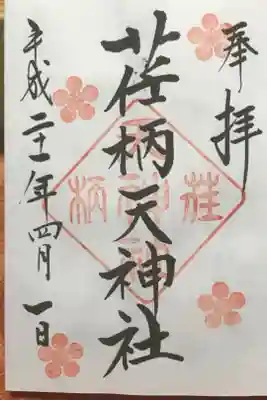 奉拝
荏柄天神社
平成二十一年四月一日
荏
柄